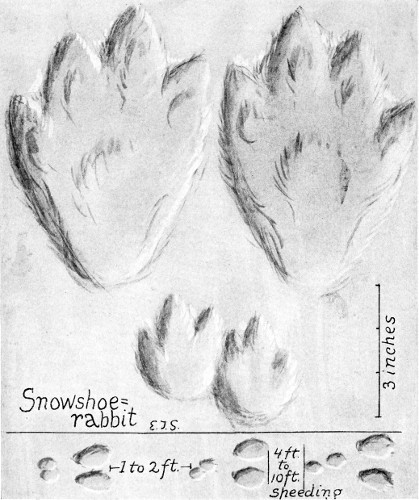 3 inches
Snowshoe=
rabbit E.J.S.
1 to 2 ft.
4 ft.
to
10 ft.
sheeding